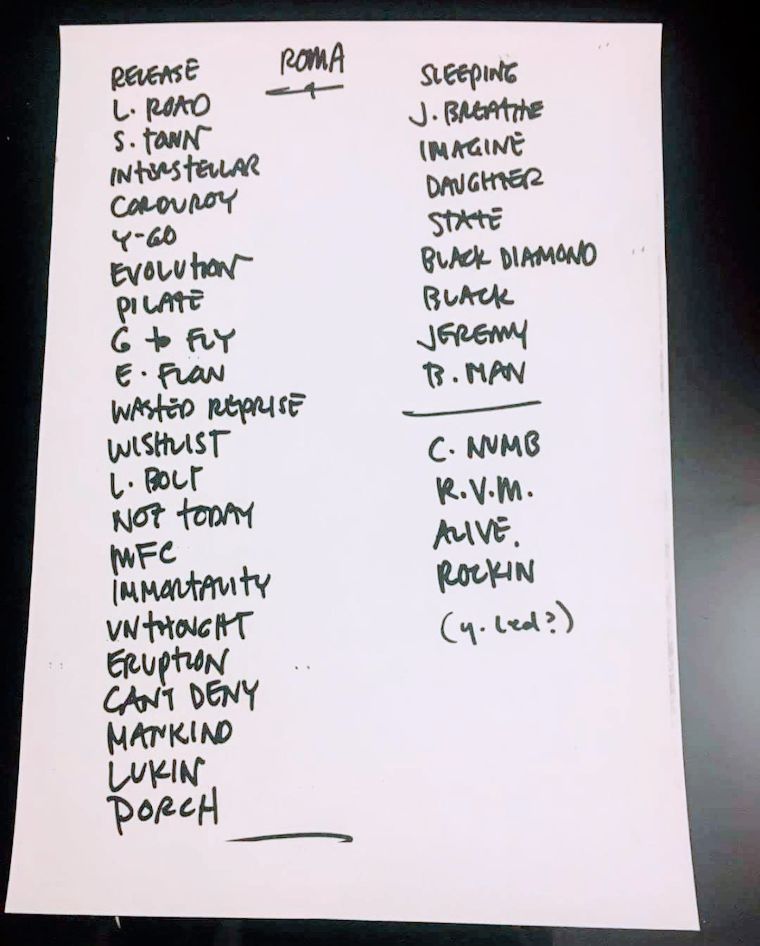 ROMA
RELEASE
L. ROAD
S. TOWN
INTERSTELLAR
CORDUROY
Y-GO
EVOLUTION
PILATE
G to FLY
E. FLOW
WASTED REPRISE
WISHLIST
L. BOLT
NOT TODAY
MFC
IMMORTALITY
UNTHOUGHT
ERUPTION
CANT DENY
MANKIND
LUKIN
PORCH
SLEEPING
J. BREATHE
IMAGINE
DAUGHTER
STATE
BLACK DIAMOND
BLACK
JEREMY
B. MAN
C. NUMB
R.V.M.
ALIVE.
ROCKIN
(y. led?)